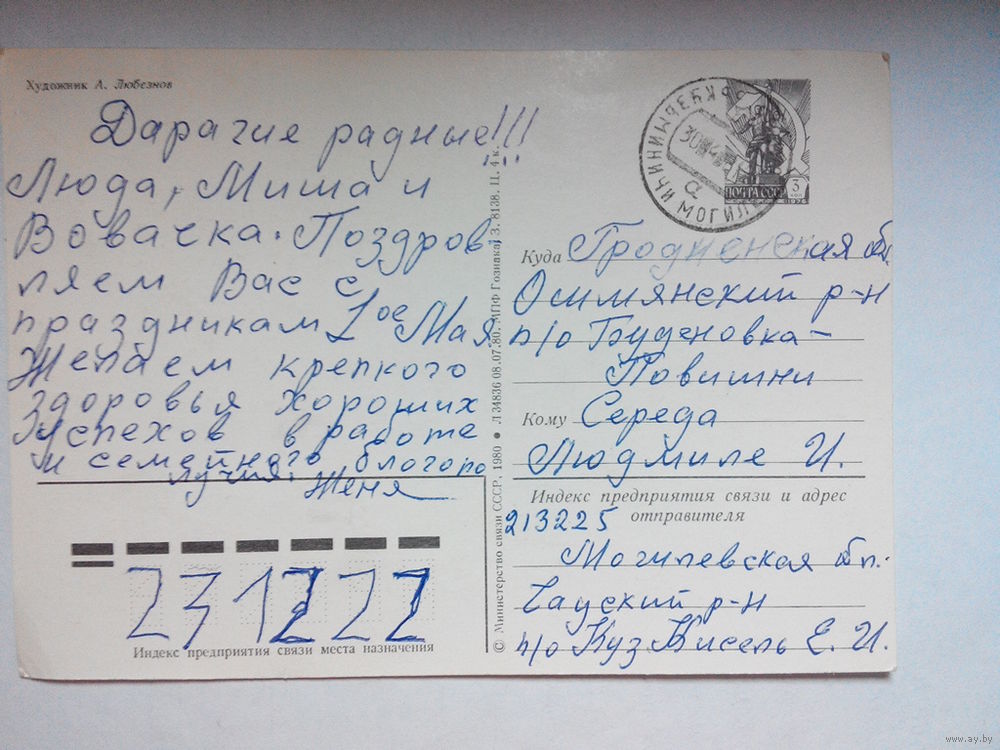 Художник А. Любезнов
Дарагие радные!!!
Люда, Миша и
Вовачка. Поздров-
ляем Вас с
праздникам 1ое Мая
Желаем крепкого
здоровья хороших
успехов в работе
и семейного благопо
лучия. Женя
Индекс предприятия связи места назначения
231222
© Министерство связи СССР, 1980 • Л 34836 08.07.80. МПФ Гознака. З. 8138. Ц. 4 к.
ПОЧТА СССР
3
1976
Куда Гродненская обл.
Осимянский р-н
п/о Буденовка-
Повишни
Кому Середа
Людмиле И.
Индекс предприятия связи и адрес
отправителя
213225
Могилевская обл.
Чауский р-н
п/о Куз Кисель Е. И.
www.ay.by